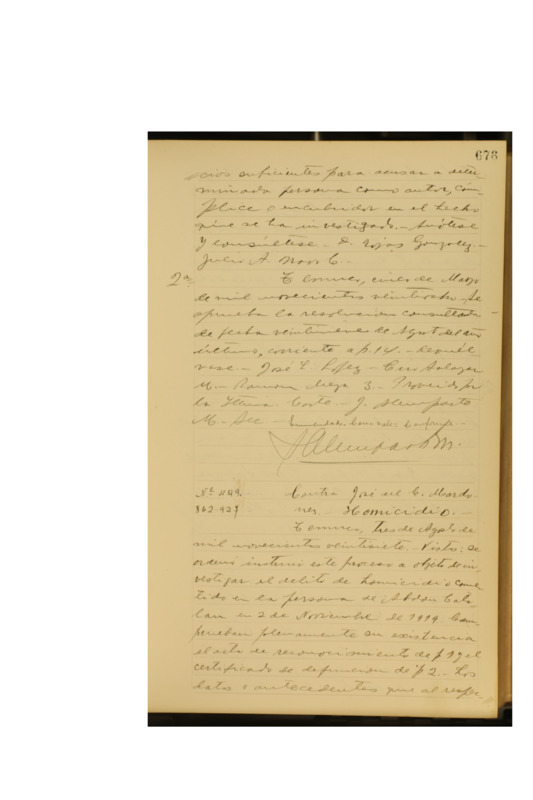 678
cios suficientes para acusar a deter
minada persona como autor, cóm
plice o encubridor en el hecho
que se ha investigado. Anótese
y consúltese. - D. Rojas Gonzalez. -
Julio A. C. -
2ª. Temuco, cinco de Mayo
de mil novecientos veintiocho. Se
aprueba la resolucion consultada
de fecha veintinueve de Agosto del año
último, corriente a f. 14. - Devuél
vase. - José L. Lopez - Ciro Salazar
M. - Ramon Meza - Proveido por
la Iltma. Corte. - J. Alemparte
M. Sec -
J Alemparte M.
Nº 449. Contra José del C. Mardo
nes. - Homicidio. -
Temuco, tres de Agosto de
mil novecientos veintisiete. - Vistos: se
ordenó instruir este proceso a objeto de in
vestigar el delito de homicidio come
tido en la persona de
en 2 de Noviembre de 1919. Com
prueban plenamente su existencia
el acta de reconocimiento de f 1 y el
certificado de defuncion de f 2. - Los
datos o antecedentes que al respec